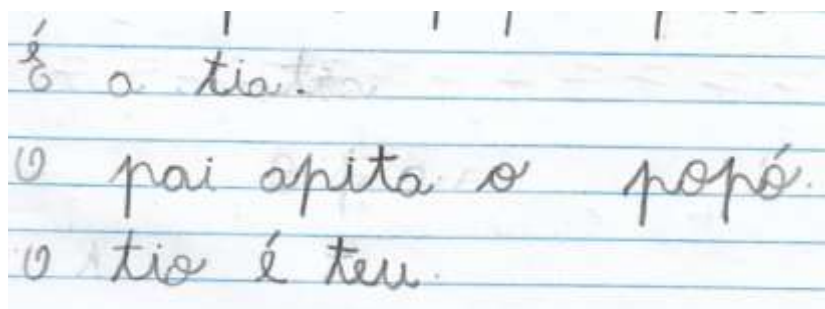 É a tia.
O pai apita o popó.
O tio é teu.